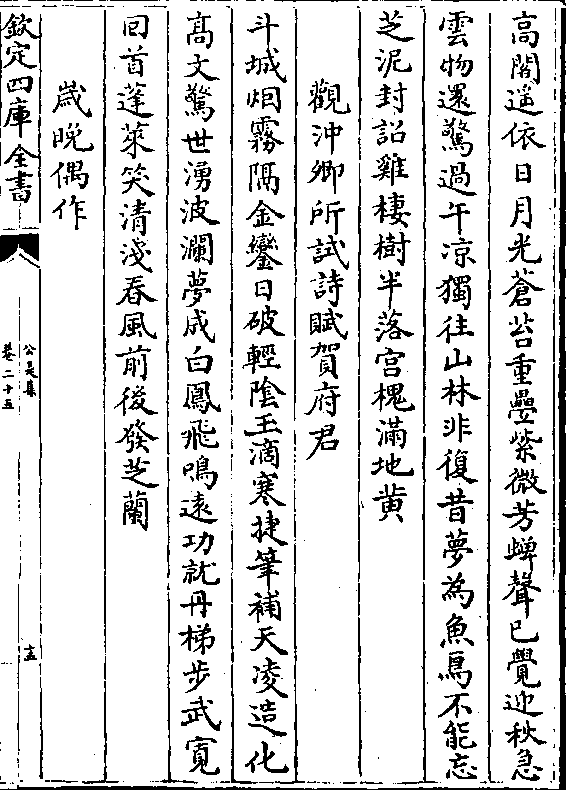 高閣遥依日月光蒼苔重疊紫微芳蟬聲已覺迎秋急
雲物還驚過午凉獨往山林非復昔夢為魚鳥不能忘
芝泥封詔雞棲樹半落宫槐滿地黄
觀沖卿所試詩賦賀府君
斗城烟霧隔金鑾日破輕陰玉滴寒捷筆補天凌造化
髙文驚世湧波瀾夢成白鳳飛鳴逺功就丹梯步武寛
回首蓬萊笑清淺春風前後發芝蘭
歲晩偶作
欽定四庫全書
公是集
卷二十五
十五